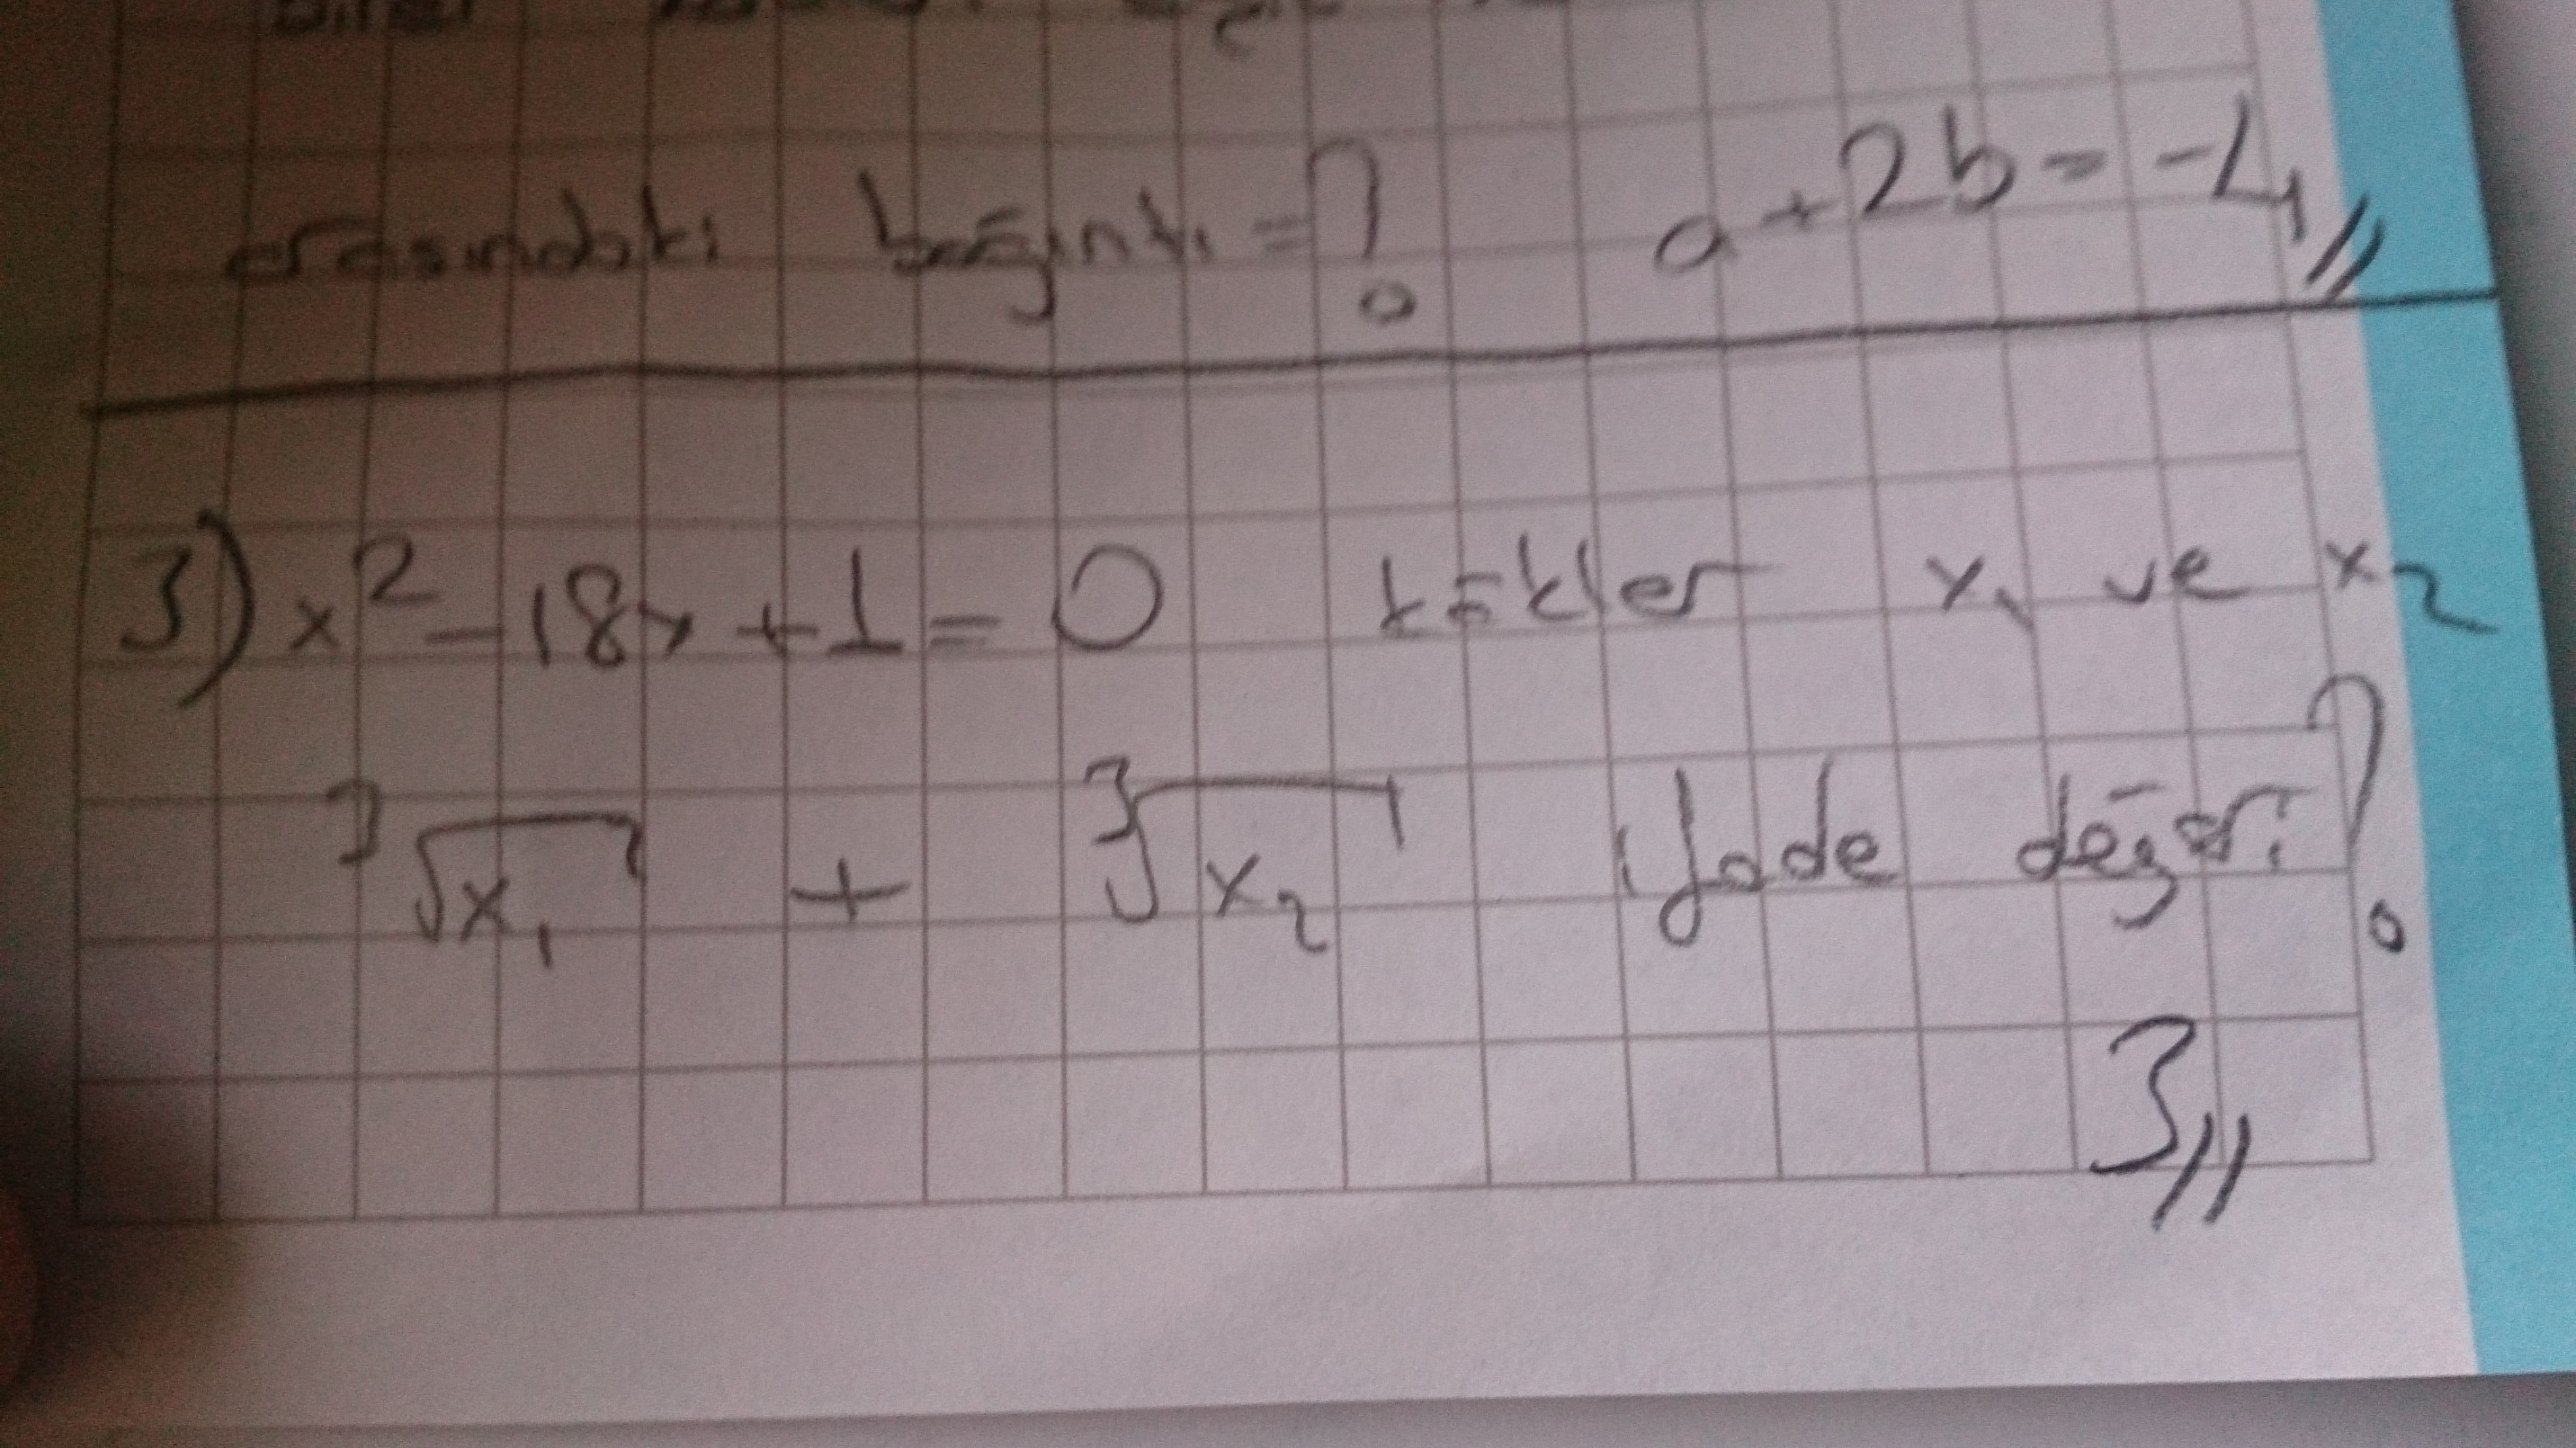 arasındaki bağıntı = ? a + 2b = -4
3) x² - 18x + 1 = 0 kökler x₁ ve x₂
³√x₁ + ³√x₂ ifade değeri?
3